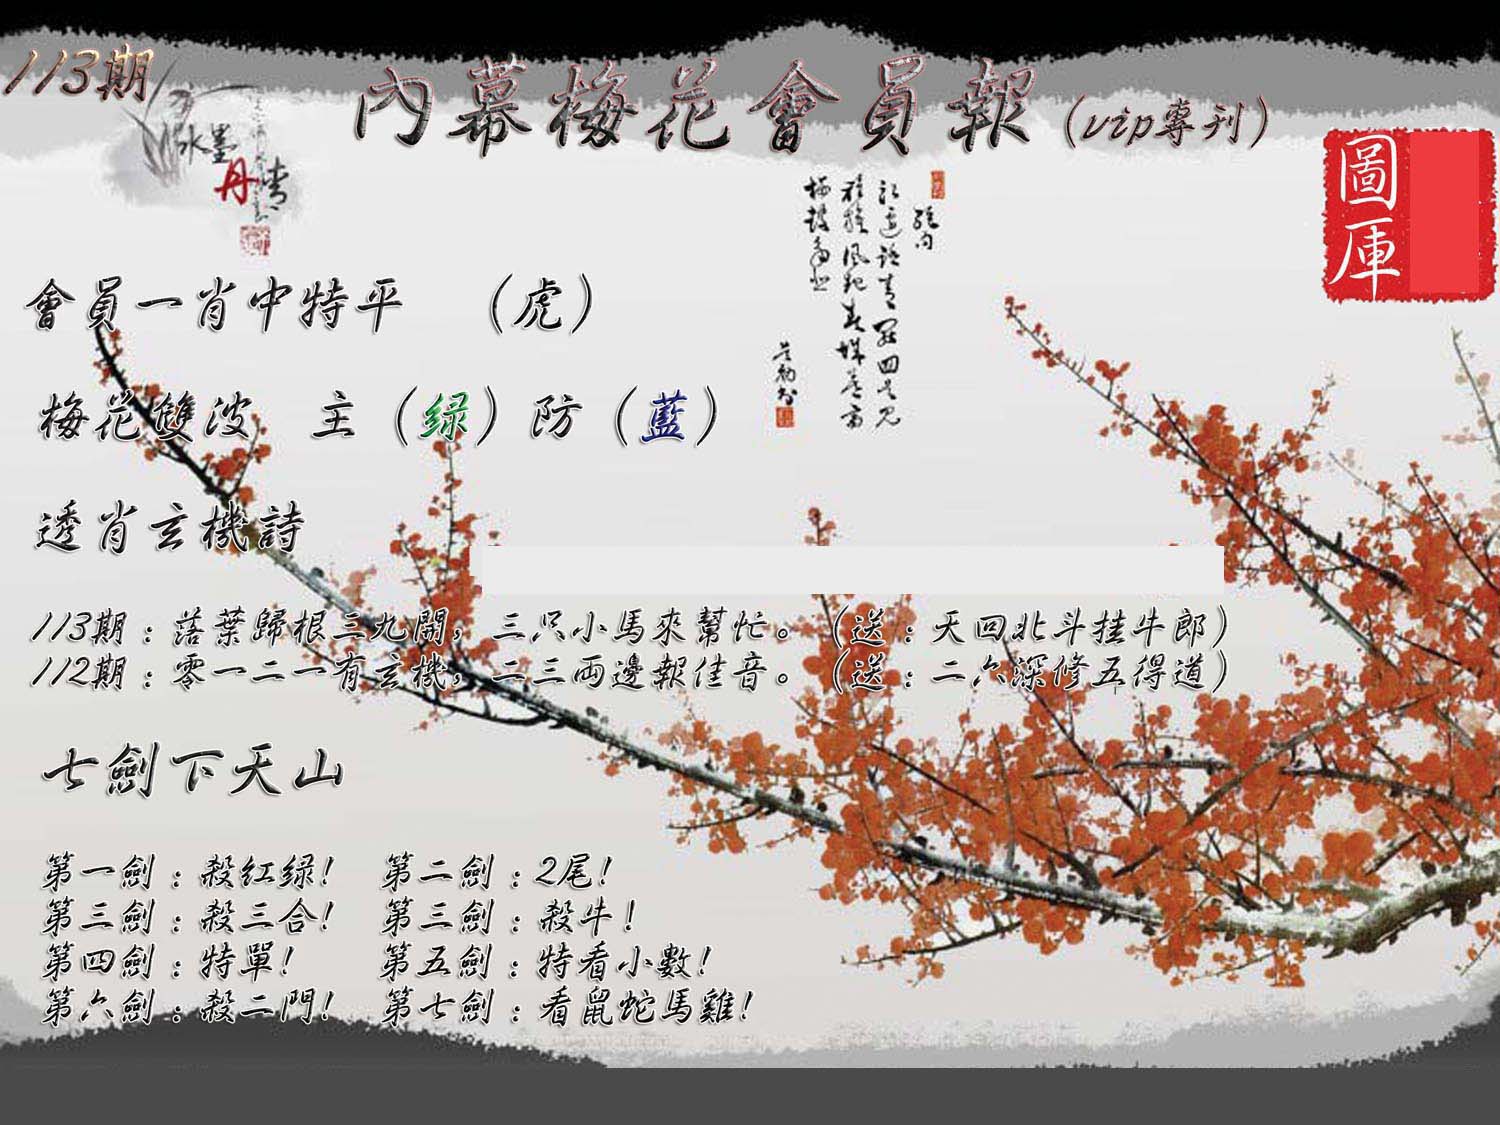 113期
內幕梅花會員報(vip專刊)
水墨
丹青
圖
庫
會員一肖中特平 (虎)
梅花雙波 主(绿)防(藍)
透肖玄機詩
113期：落葉歸根三九開，三只小馬來幫忙。(送：天回北斗挂牛郎)
112期：零一二一有玄機，二三兩邊報佳音。(送：二六深修五得道)
七劍下天山
第一劍：殺紅绿! 第二劍：2尾!
第三劍：殺三合! 第三劍：殺牛!
第四劍：特單! 第五劍：特看小數!
第六劍：殺二門! 第七劍：看鼠蛇馬雞!